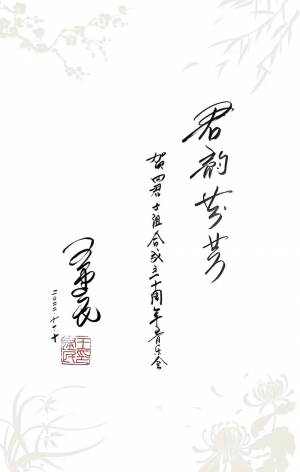 君韵芬芳
贺四君子组合成立十周年音乐会
二〇二二